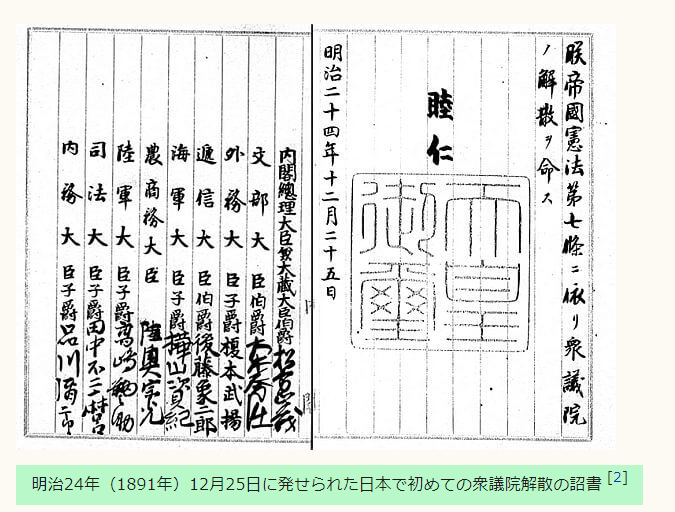 朕帝國憲法第七條ニ依リ衆議院
ノ解散ヲ命ス
睦仁
天皇御璽
明治二十四年十二月二十五日
内閣總理大臣兼大藏大臣伯爵松方正義
文部大臣伯爵大木喬任
外務大臣子爵榎本武揚
遞信大臣伯爵後藤象二郎
海軍大臣子爵樺山資紀
農商務大臣陸奥宗光
陸軍大臣子爵高嶋鞆之助
司法大臣子爵田中不二麿
内務大臣子爵品川彌二郎
明治24年（1891年）12月25日に発せられた日本で初めての衆議院解散の詔書 [2]